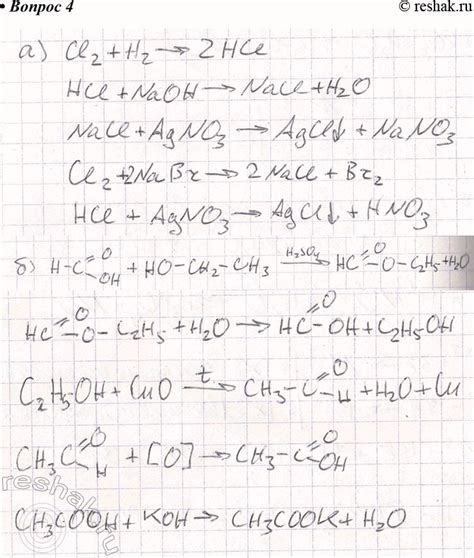 • Вопрос 4
© reshak.ru
а) Cl2 + H2 → 2HCl
HCl + NaOH → NaCl + H2O
NaCl + AgNO3 → AgCl↓ + NaNO3
Cl2 + 2NaBr → 2NaCl + Br2
HCl + AgNO3 → AgCl↓ + HNO3
б) H-C=O OH + HO-CH2-CH3 H2SO4→ HC=O O-C2H5 + H2O
HC=O O-C2H5 + H2O → HC=O OH + C2H5OH
C2H5OH + CuO t→ CH3-C=O H + H2O + Cu
CH3C=O H + [O] → CH3-C=O OH
CH3COOH + KOH → CH3COOK + H2O
reshak.ru